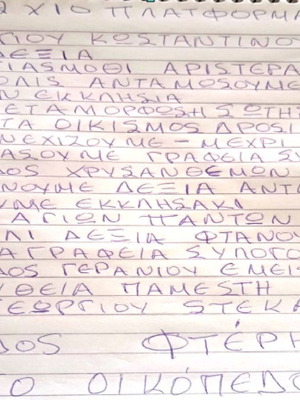 2 ΧΙΟ ΠΛΑΤΦΟΡΜΑ
ΓΙΟΥ ΚΩΣΤΑΝΤΙΝΟΥ
ΔΕΞΙΑ
ΑΡΙΣΤΕΡΑ
ΟΛΙS ΑΝΤΑΜΟΣΟΥΜΕ
ΗΝ ΕΚΚΛΗSΙΑ
ΕΤΑΜΟΡΦΩSΗ SΩΤΗ
ΤΑ ΟΙΚΙSΜΟS ΔΡΟSΙ
ΝΕΧΙΖΟΥΜΕ - ΜΕΧΡΙ
ΑSΟΥΜΕ ΓΡΑΦΕΙΑ S
ΔΟS ΧΡΥSΑΝΘΕΜΩΝ
ΝΟΥΜΕ ΔΕΞΙΑ ΑΝΤΑ
ΥΜΕ ΕΚΚΛΗSΑΚΙ
ΑΓΙΩΝ ΠΑΝΤΩΝ
ΛΙ ΔΕΞΙΑ ΦΤΑΝΟΥ
ΓΡΑΦΕΙΑ SΥΛΟΓΟ
ΔΟS ΓΕΡΑΝΙΟΥ ΕΜΕΙ
ΥΘΕΙΑ ΠΑΜΕSΤΗ
ΕΩΡΓΙΟΥ SΤΕΚΑ
ΔΟS ΦΤΕΡΗ
ΤΟ ΟΙΚΌΠΕΔΟ